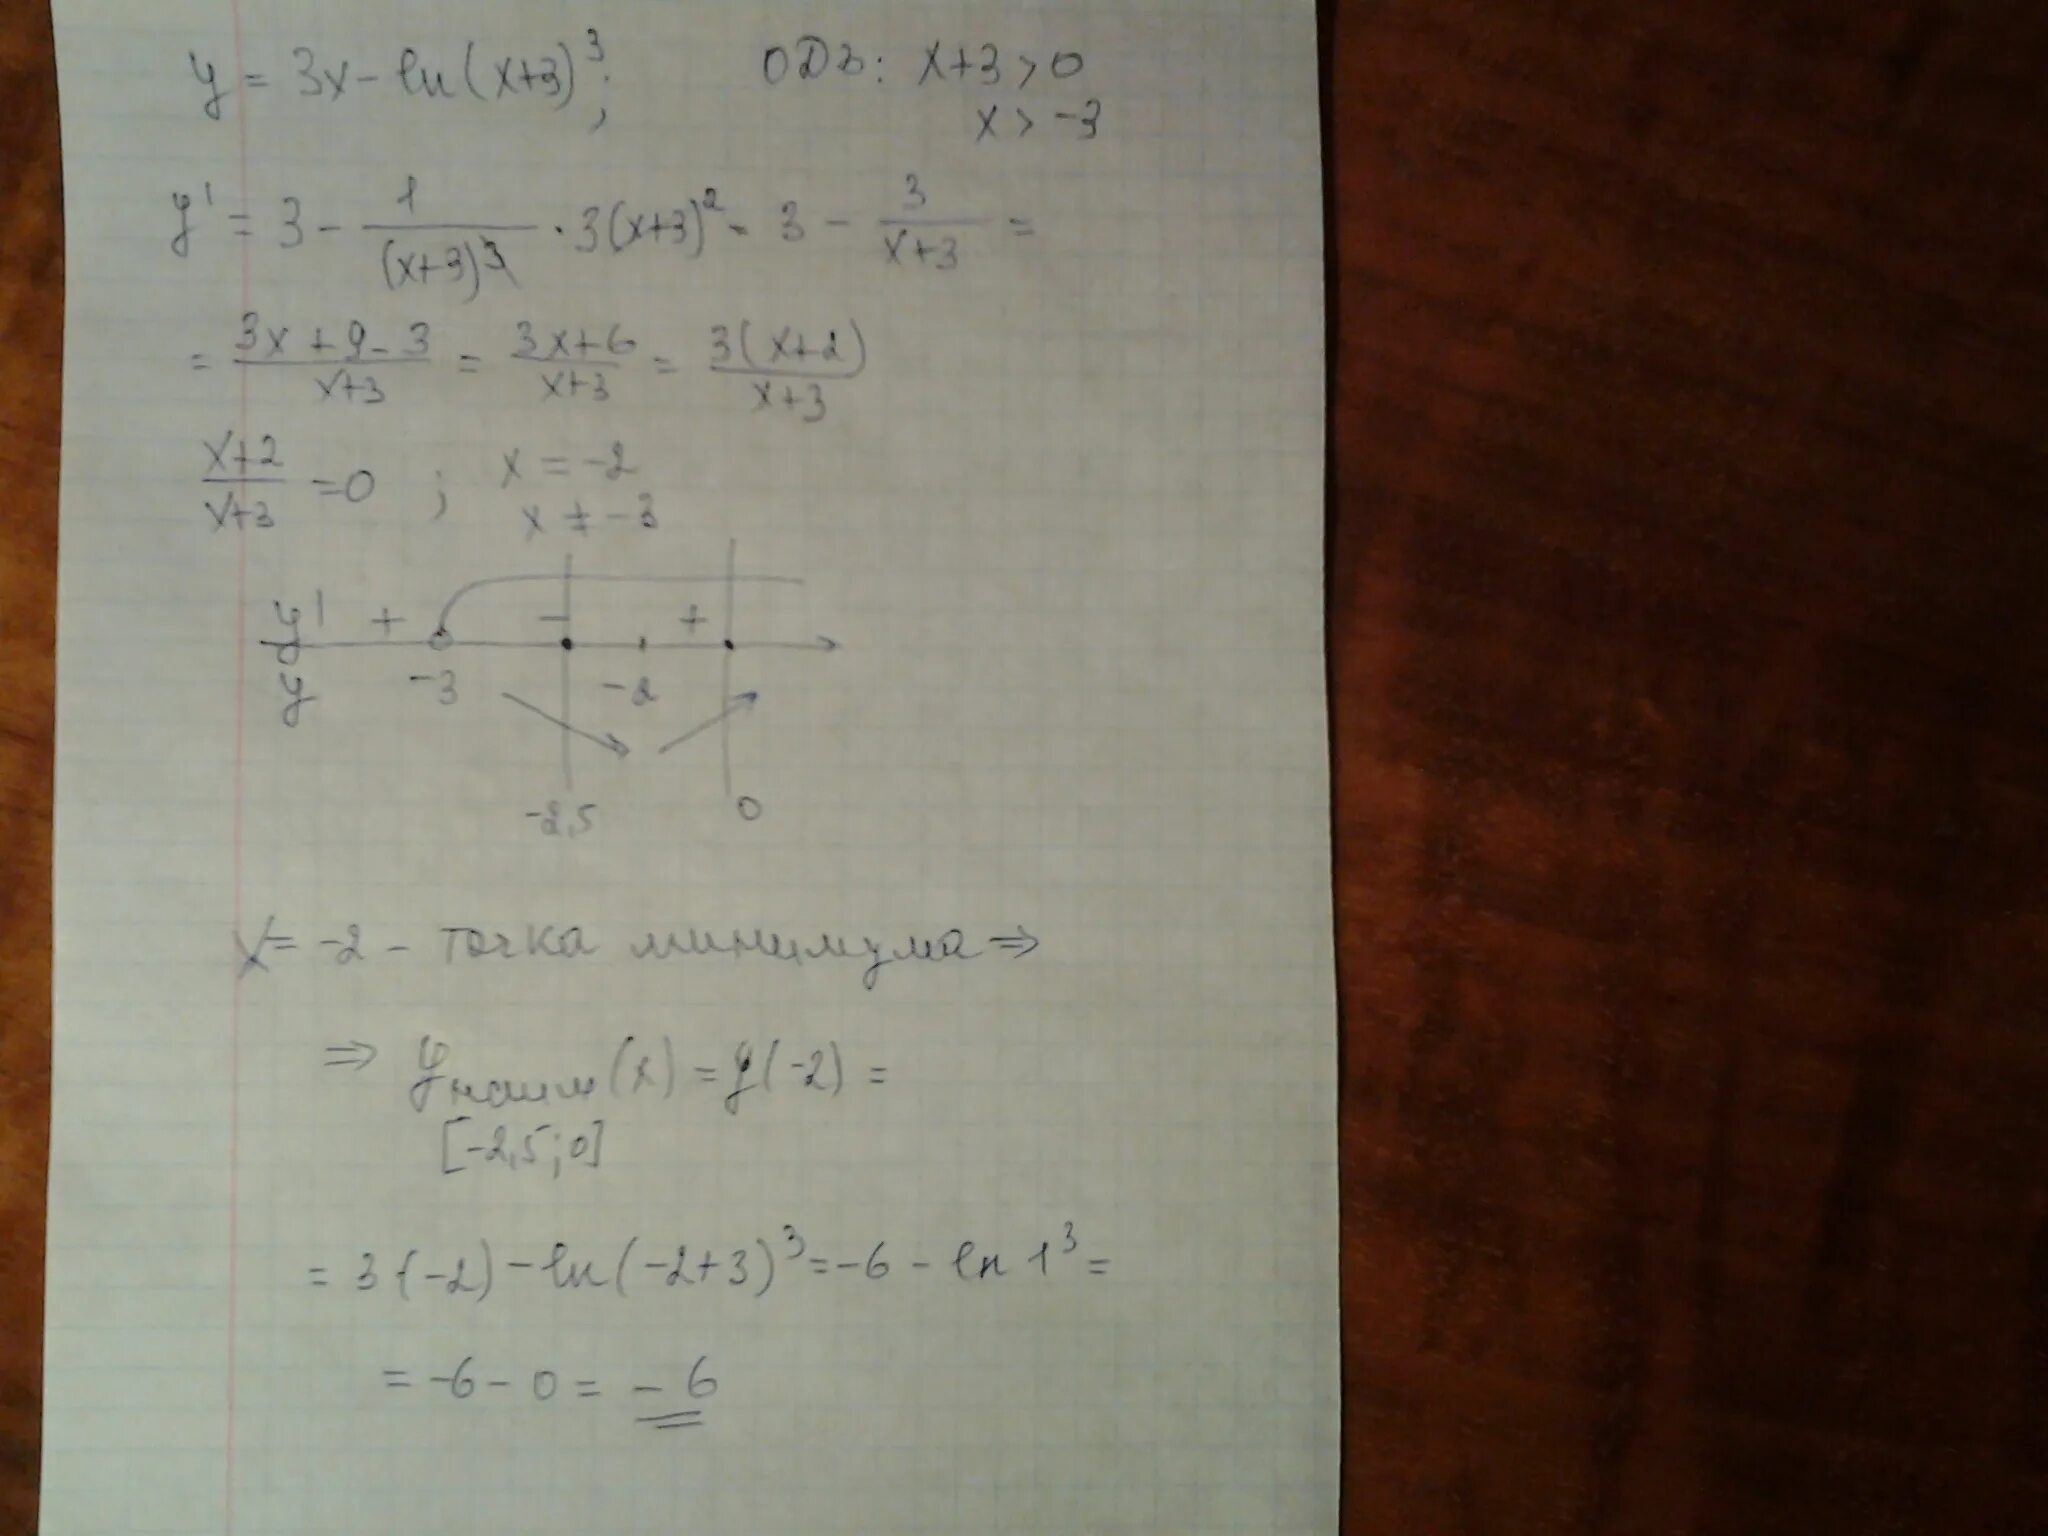 y = 3x - ln(x+3)³; ОДЗ: x+3 > 0
x > -3
y' = 3 - 1/(x+3)³ · 3(x+3)² = 3 - 3/(x+3) =
= (3x+9-3)/(x+3) = (3x+6)/(x+3) = 3(x+2)/(x+3)
(x+2)/(x+3) = 0 ; x = -2
x ≠ -3
y' + - +
y -3 -2
-2,5 0
x = -2 - точка минимума ⇒
⇒ y наим (x) = y(-2) =
[-2,5;0]
= 3·(-2) - ln(-2+3)³ = -6 - ln 1³ =
= -6 - 0 = -6